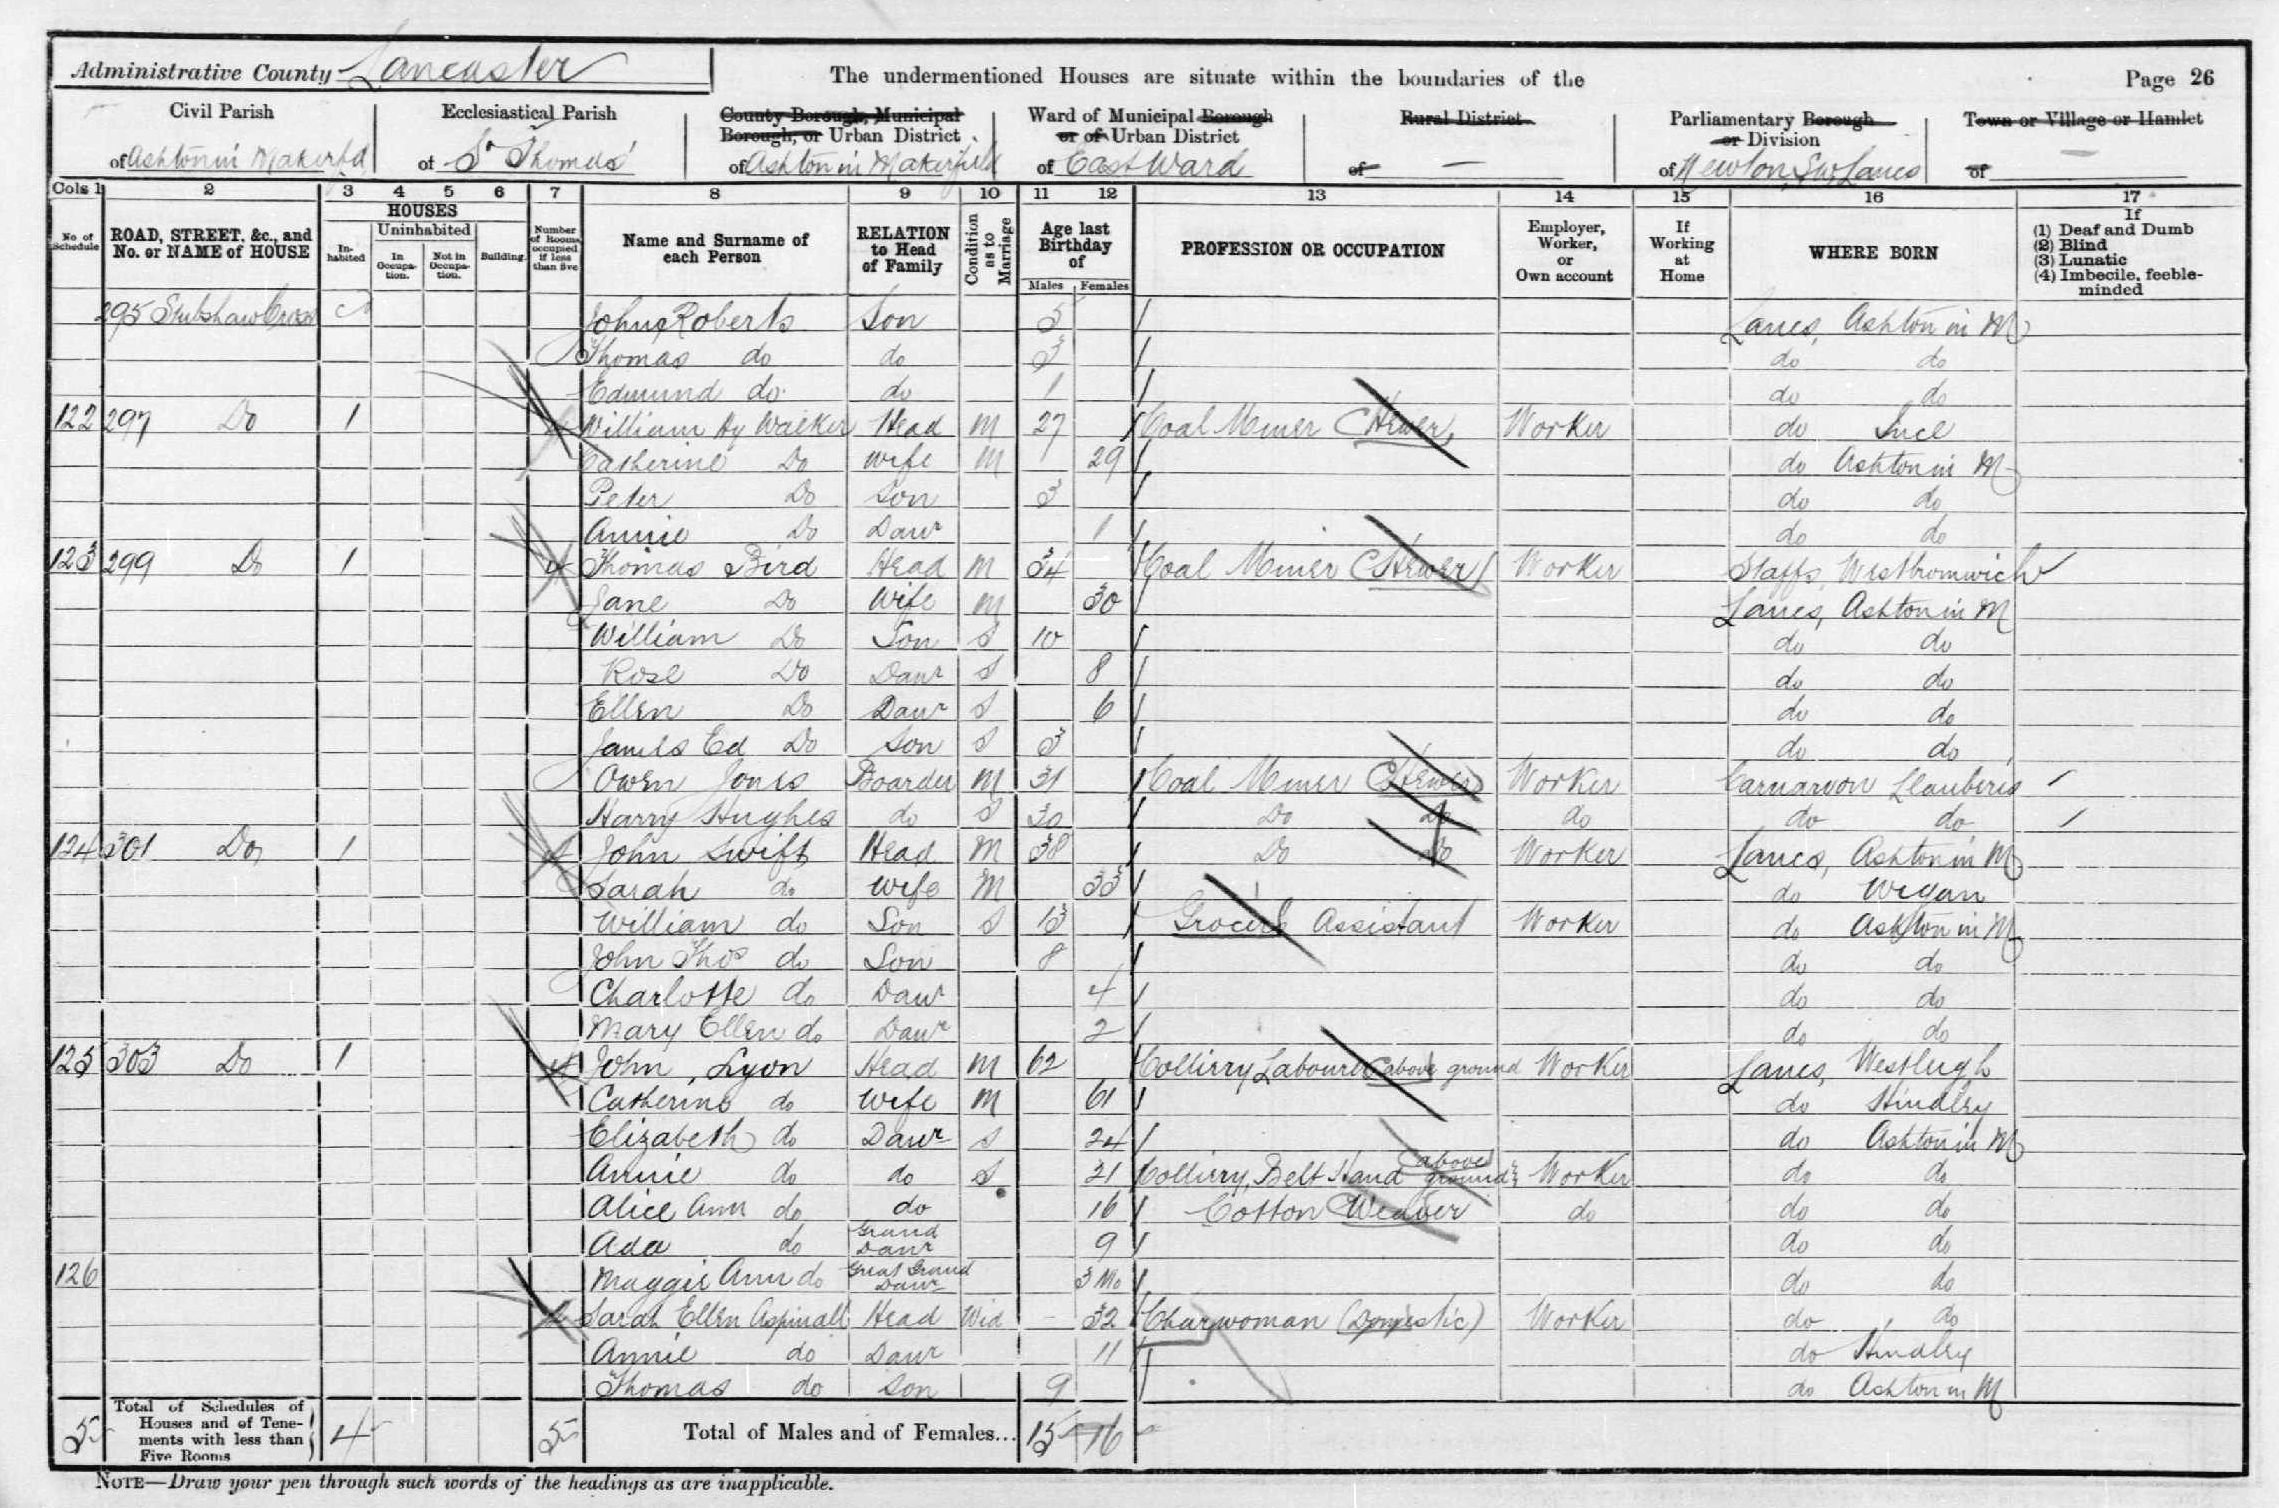 Administrative County Lancaster The undermentioned Houses are situate within the boundaries of the Page 26
Civil Parish Ecclesiastical Parish County Borough, Municipal Borough, or Urban District Ward of Municipal Borough or of Urban District Rural District Parliamentary Borough or Division Town or Village or Hamlet
of Ashton in Makerfd of St Thomas' of Ashton in Makerfield of East Ward of — of Newton, S.W. Lancs of —
Cols 1 2 3 4 5 6 7 8 9 10 11 12 13 14 15 16 17
No. of Schedule ROAD, STREET, &c., and No. or NAME of HOUSE HOUSES Inhabited Uninhabited In Occupation. Not in Occupation. Building. Number of Rooms occupied if less than five Name and Surname of each Person RELATION to Head of Family Condition as to Marriage Age last Birthday of Males Females PROFESSION OR OCCUPATION Employer, Worker, or Own account If Working at Home WHERE BORN If (1) Deaf and Dumb (2) Blind (3) Lunatic (4) Imbecile, feeble-minded
295 Stubshaw Cross John Roberts Son 5 Lancs, Ashton in M
Thomas do do 3 do do
Edmund do do 1 do do
122 297 Do 1 William Hy Walker Head M 27 Coal Miner (Hewer) Worker do Ince
Catherine Do wife M 29 do Ashton in M
Peter Do Son 3 do do
Annie Do Daur 1 do do
123 299 Do 1 4 Thomas Bird Head M 34 Coal Miner (Hewer) Worker Staffs, Westbromwich
Jane Do Wife M 30 Lancs, Ashton in M
William Do Son S 10 do do
Rose Do Daur S 8 do do
Ellen Do Daur S 6 do do
James Ed Do Son S 3 do do
Owen Jones Boarder M 31 Coal Miner (Hewer) Worker Carnarvon Llanberis
Harry Hughes do S 30 Do do do do do
124 301 Do 1 4 John Swift Head M 38 Do do Worker Lancs, Ashton in M
Sarah do Wife M 33 do Wigan
William do Son S 13 Grocer's Assistant Worker do Ashton in M
John Thos do Son 8 do do
Charlotte do Daur 4 do do
Mary Ellen do Daur 2 do do
125 303 Do 1 4 John Lyon Head M 62 Colliery Labourer (above ground Worker Lancs, Westleigh
Catherine do Wife M 61 do Hindley
Elizabeth do Daur S 24 do Ashton in M
Annie do do S 21 Colliery, Belt Hand (above ground) Worker do do
Alice Ann do do 16 Cotton Weaver do do do
Ada do Grand Daur 9 do do
126 Maggie Ann do Great Grand Daur 3 Mo do do
Sarah Ellen Aspinall Head Wid 32 Charwoman (Domestic) Worker do do
Annie do Daur 11 do Hindley
Thomas do Son 9 do Ashton in M
5 Total of Schedules of Houses and of Tenements with less than Five Rooms 4 5 Total of Males and of Females... 15 16
NOTE—Draw your pen through such words of the headings as are inapplicable.